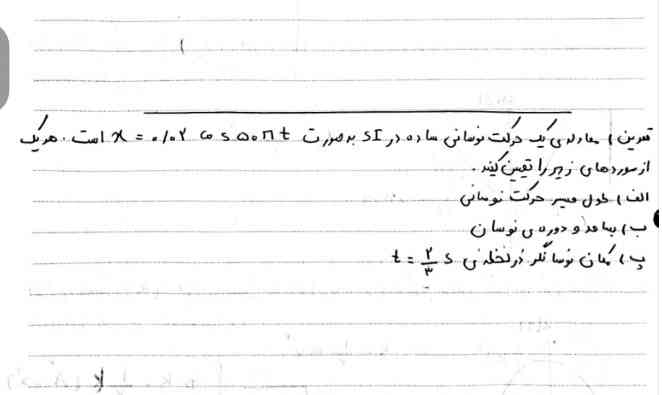 تمرین ) معادله‌ی یک حرکت نوسانی ساده در SI به صورت x = ۰/۰۲ cos ۵۰πt است. هریک
از موردهای زیر را تعیین کنید.
الف ) طول مسیر حرکت نوسانی
ب ) بسامد و دوره‌ی نوسان
پ ) مکان نوسانگر در لحظه‌ی t = ۲/۳ s